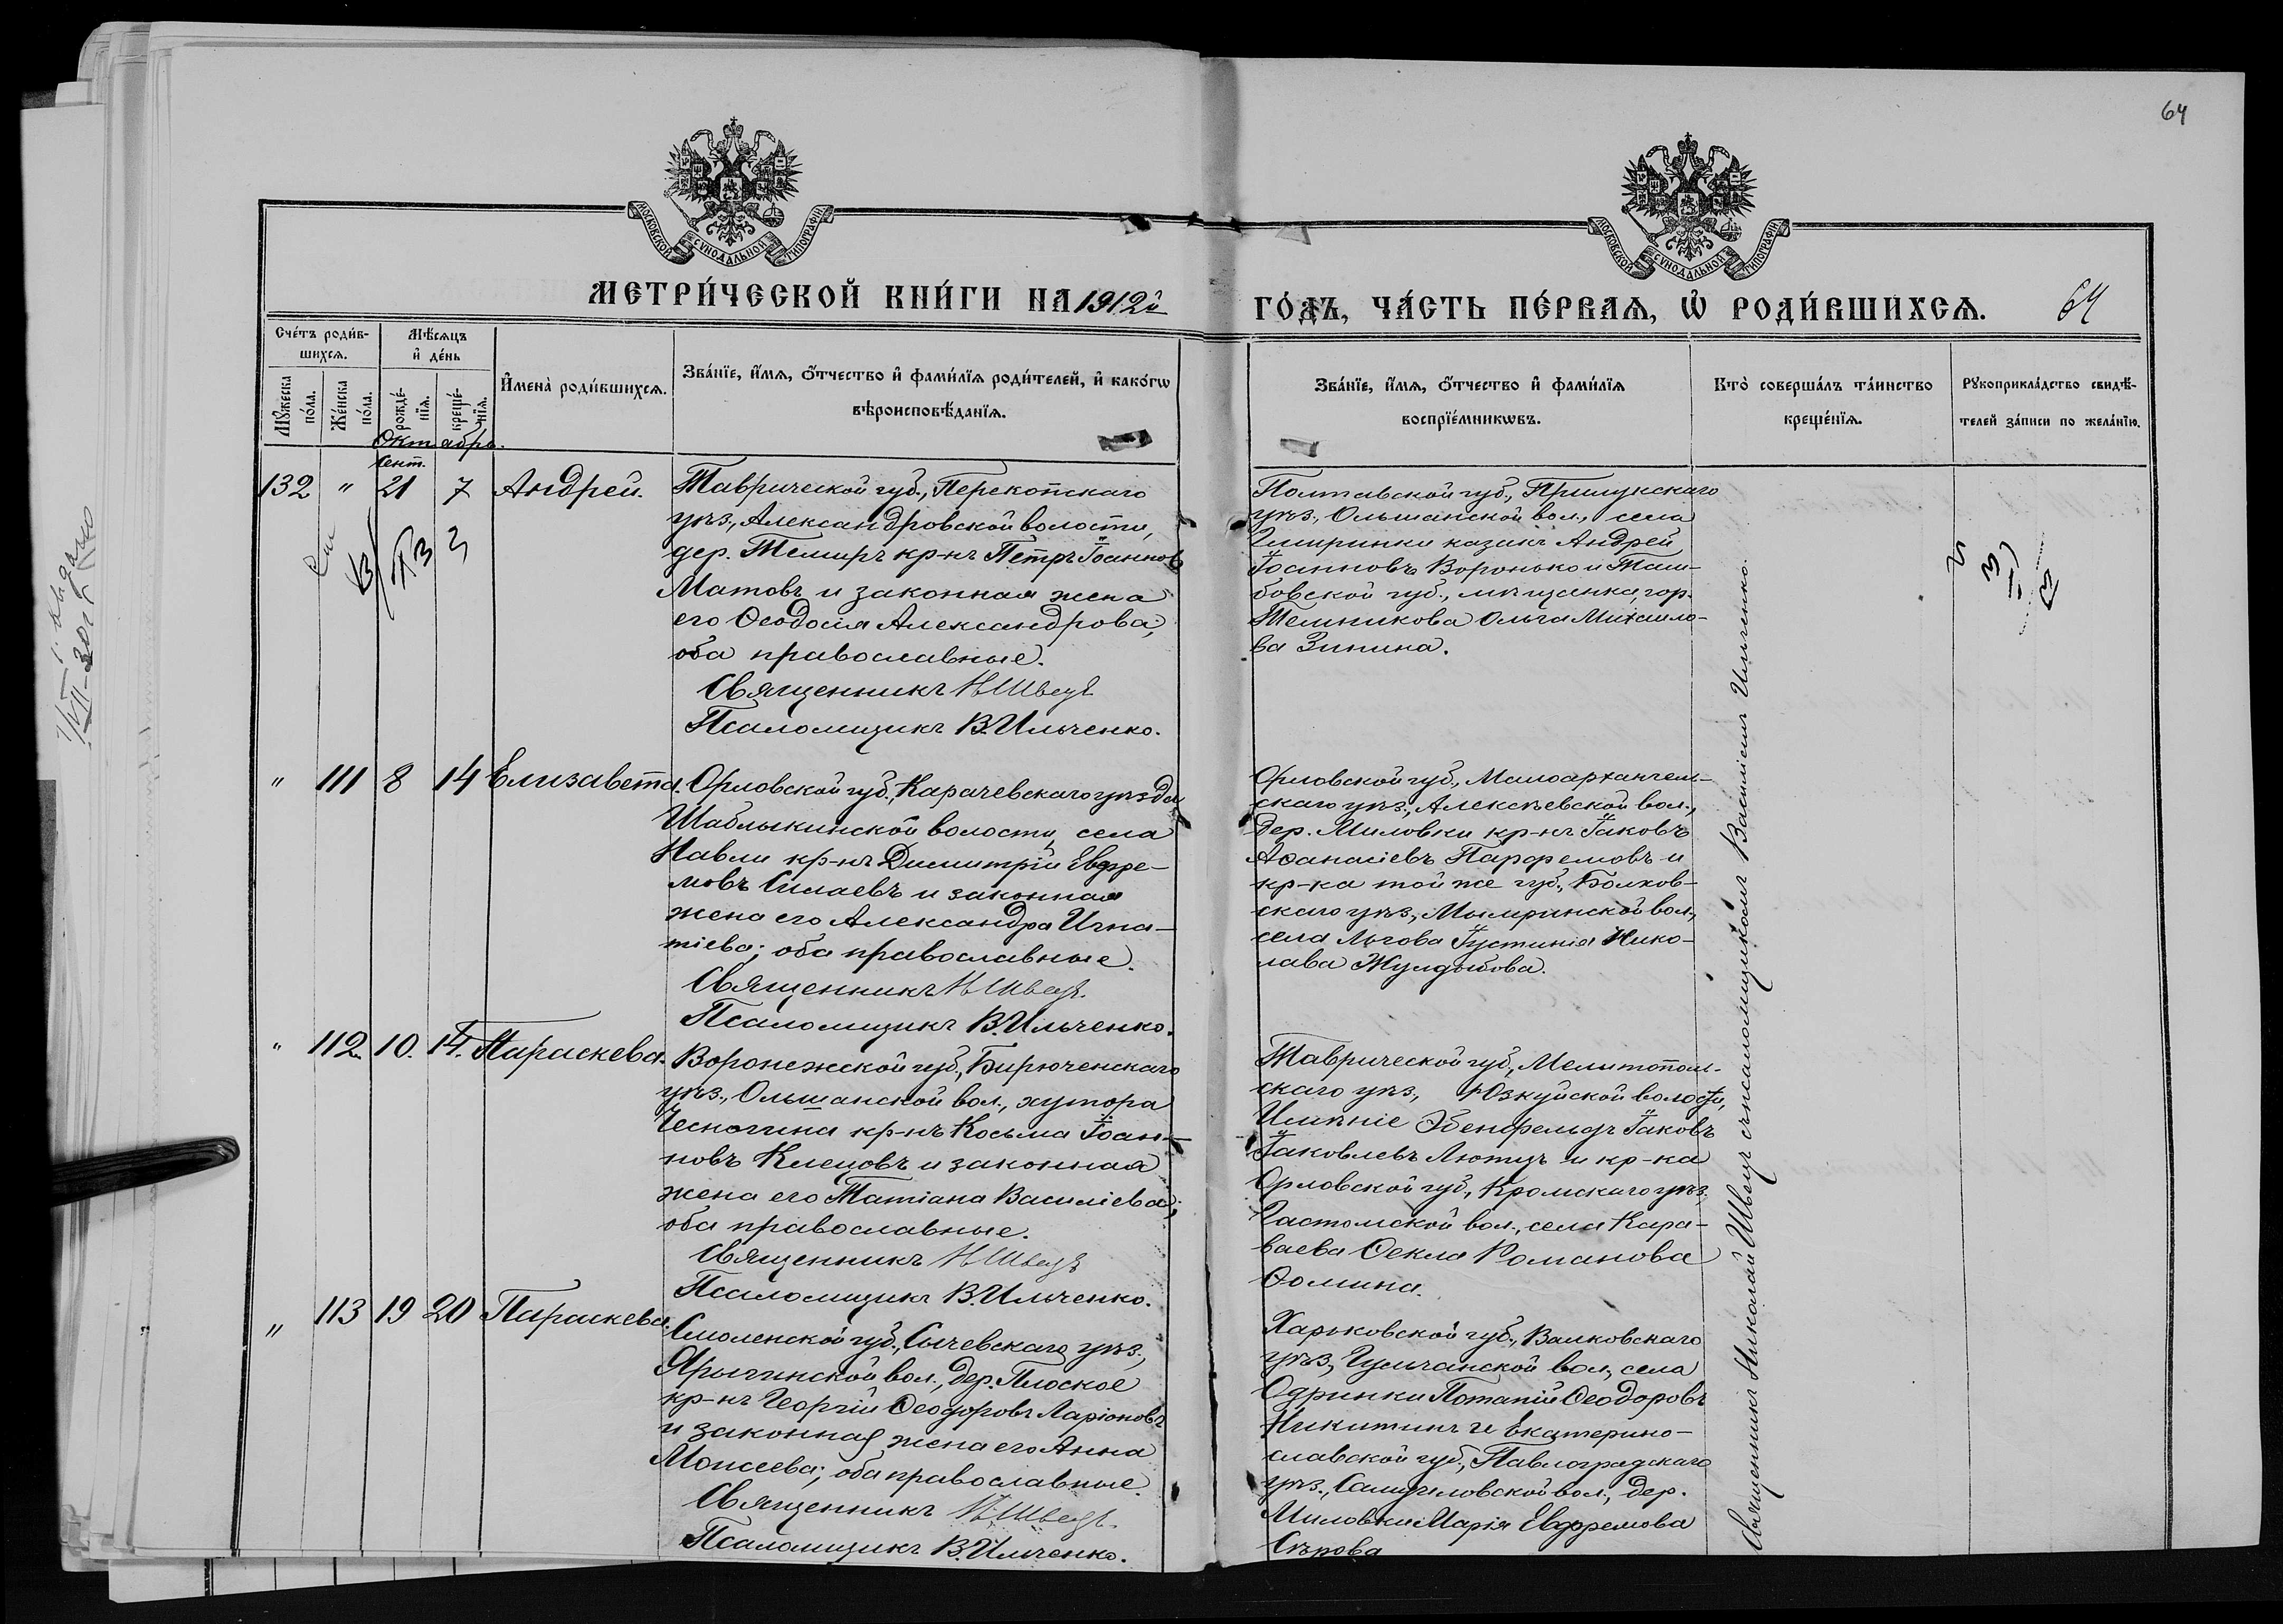 64
МОСКОВСКОЙ СУНОДАЛЬНОЙ ТИПОГРАФІИ
МОСКОВСКОЙ СУНОДАЛЬНОЙ ТИПОГРАФІИ
МЕТРИ́ЧЕСКОЙ КНИ́ГИ НА 1912й
ГО́ДЪ, ЧА́СТЬ ПЕ́РВАѦ, Ѡ҆ РОДИ́ВШИХСѦ.
64
Сче́тъ роди́в-
шихсѧ.
Мѹ́жеска по́ла.
Же́нска по́ла.
Мѣ́сѧцъ
и҆ де́нь
рожде́-
нїѧ.
креще́-
нїѧ.
И҆мена̀ роди́вшихсѧ.
Зва́нїе, и҆́мѧ, ѻ҆́тчество и҆ фами́лїѧ роди́телей, и҆ како́гѡ
вѣроисповѣ́данїѧ.
Зва́нїе, и҆́мѧ, ѻ҆́тчество и҆ фами́лїѧ
воспрїе́мникѡвъ.
Кто̀ соверша́лъ та́инство
креще́нїѧ.
Рꙋкоприкла́дство свидѣ́-
телей за́писи по жела́нїю.
Октябрь.
Сент.
132 " 21 7 Андрей.
Таврической губ., Перекопскаго
уѣз., Александровской волости,
дер. Темиръ кр-нъ Петръ Іоанновъ
Матовъ и законная жена
его Ѳеодосія Александрова;
оба православные.
Священникъ Н Швецъ
Псаломщикъ В. Ильченко.
Полтавской губ., Прилукскаго
уѣз., Ольшанской вол., села
казакъ Андрей
Іоанновъ Воронько и Там-
бовской губ., мѣщанка, гор.
Темникова Ольга Михаило-
ва Зинина.
" 111 8 14 Елизавета.
Орловской губ., Карачевскаго уѣзда
Шаблыкинской волости, села
Навли кр-нъ Димитрій Евфре-
мовъ Силаевъ и законная
жена его Александра Игна-
тіева; оба православные.
Священникъ Н Швецъ.
Псаломщикъ В. Ильченко.
Орловской губ., Малоархангель-
скаго уѣз., Алексѣевской вол.,
дер. Миловки кр-нъ Іаковъ
Аѳанасіевъ Парфемовъ и
кр-ка той же губ., Болхов-
скаго уѣз., Мымринской вол.,
села Льгова Іустинія Нико-
лава Жулдыбова.
" 112. 10. 14. Параскева.
Воронежской губ., Бирюченскаго
уѣз., Ольшанской вол., хутора
Чесногина кр-нъ Косьма Іоан-
новъ Клецовъ и законная
жена его Татіана Василіева;
оба православные.
Священникъ Н Швецъ
Псаломщикъ В. Ильченко.
Таврической губ., Мелитополь-
скаго уѣз., Юзкуйской волости,
Имѣніе Эбенфельдъ Іаковъ
Іаковлевъ Лютцъ и кр-ка
Орловской губ., Кромскаго уѣз.,
Гастомской вол., села Кара-
ваева Ѳекла Романова
Ѳомина.
" 113 19 20 Параскева.
Смоленской губ., Сычевскаго уѣз.,
Ярыгинской вол., дер. Плоское
кр-нъ Георгій Ѳеодоровъ Ларіоновъ
и законная жена его Анна
Моисеева; оба православные.
Священникъ Н Швецъ.
Псаломщикъ В. Ильченко.
Харьковской губ., Валковскаго
уѣз., вол., села
Одринки Потапій Ѳеодоровъ
Никитинъ и Екатерино-
славской губ., Павлоградскаго
уѣз., вол., дер.
Миловки Марія Евфремова
Сѣрова
Священникъ Николай Швецъ съ псаломщикомъ Василіемъ Ильченко.